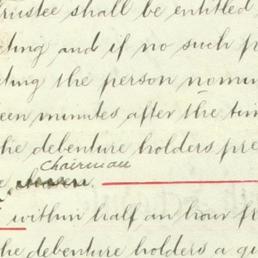 rustee shall be entitled
ting and if no such p
ting the person nomin
een minutes after the tim
he debenture holders pre
Chairman
within half an hour fr
he debenture holders a qu